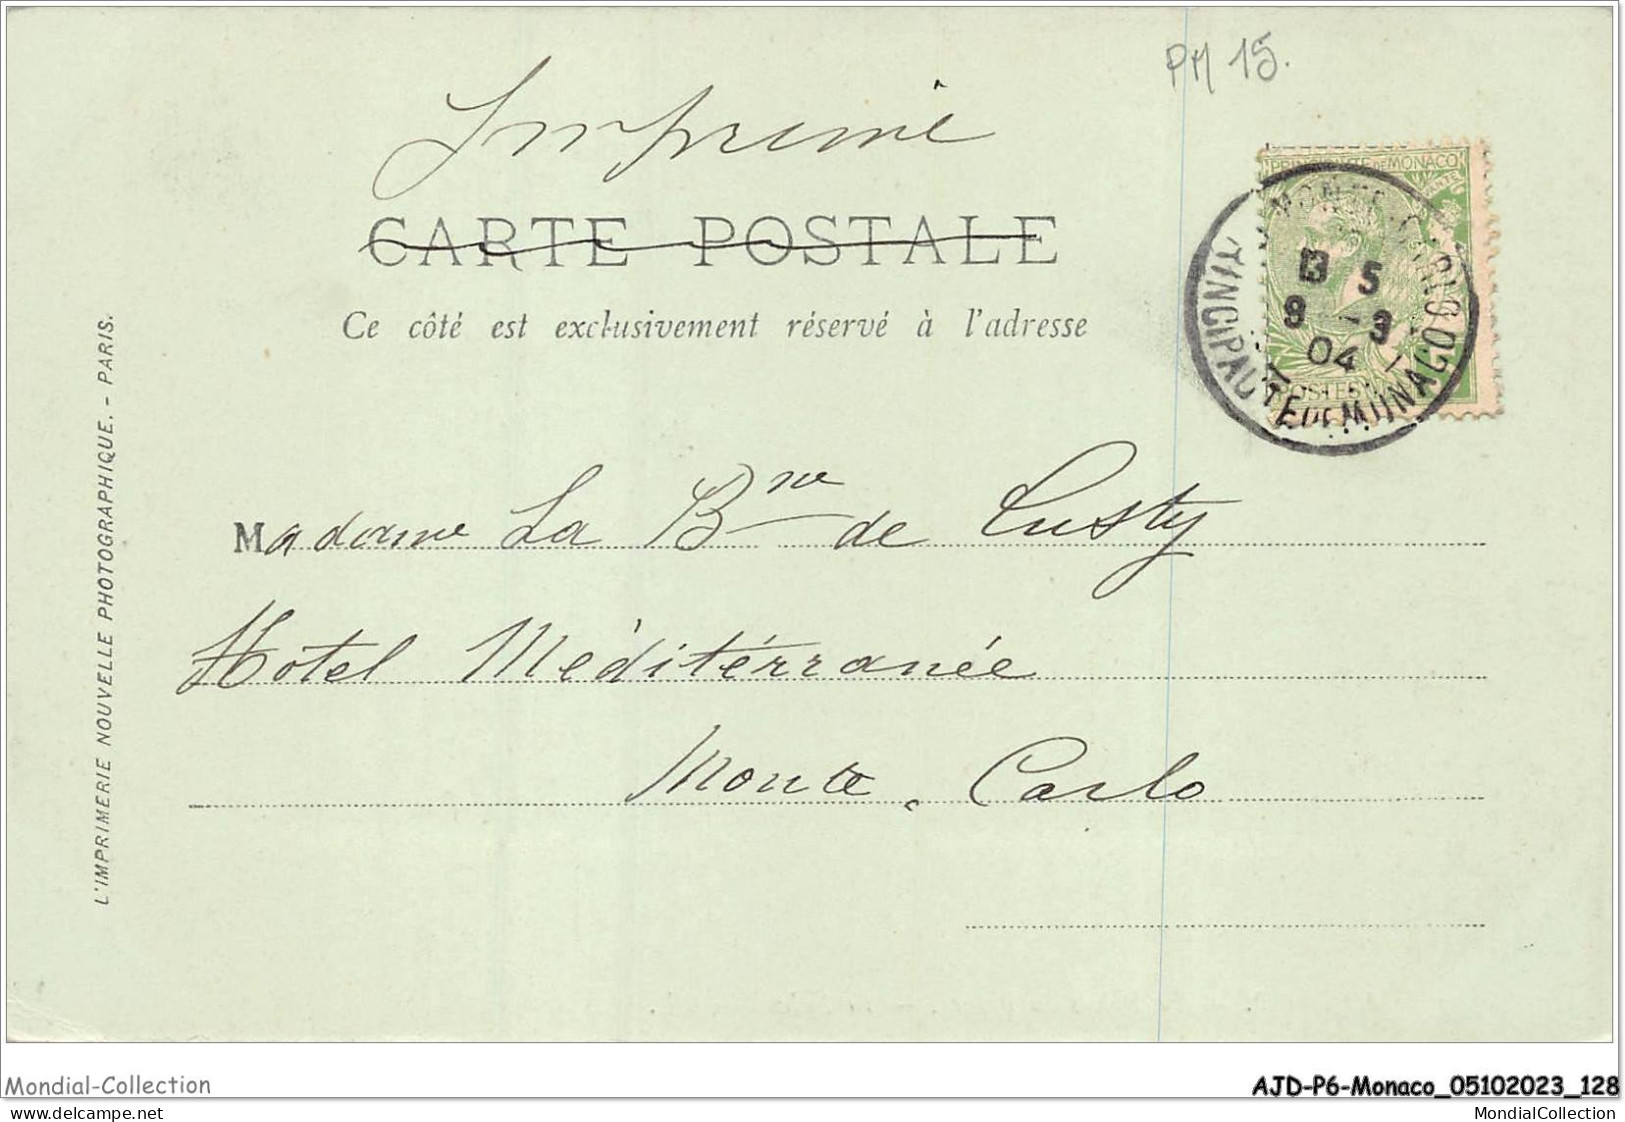 PM 15.
Imprimé
PRINCIPAUTE DE MONACO
CARTE POSTALE
Ce côté est exclusivement réservé à l'adresse
MONTE-CARLO
5
04
POSTES
PRINCIPAUTE DE MONACO
Madame La Bne de Custy
Hotel Méditérranée
Monte-Carlo
L'IMPRIMERIE NOUVELLE PHOTOGRAPHIQUE. - PARIS.
Mondial-Collection
AJD-P6-Monaco_05102023_128
Mondial-Collection.delcampe.net
MondialCollection